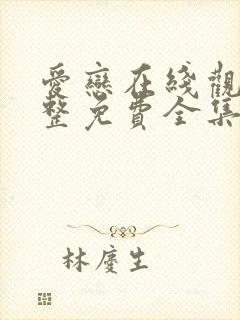 愛戀在綫觀
整免費全集
林慶生